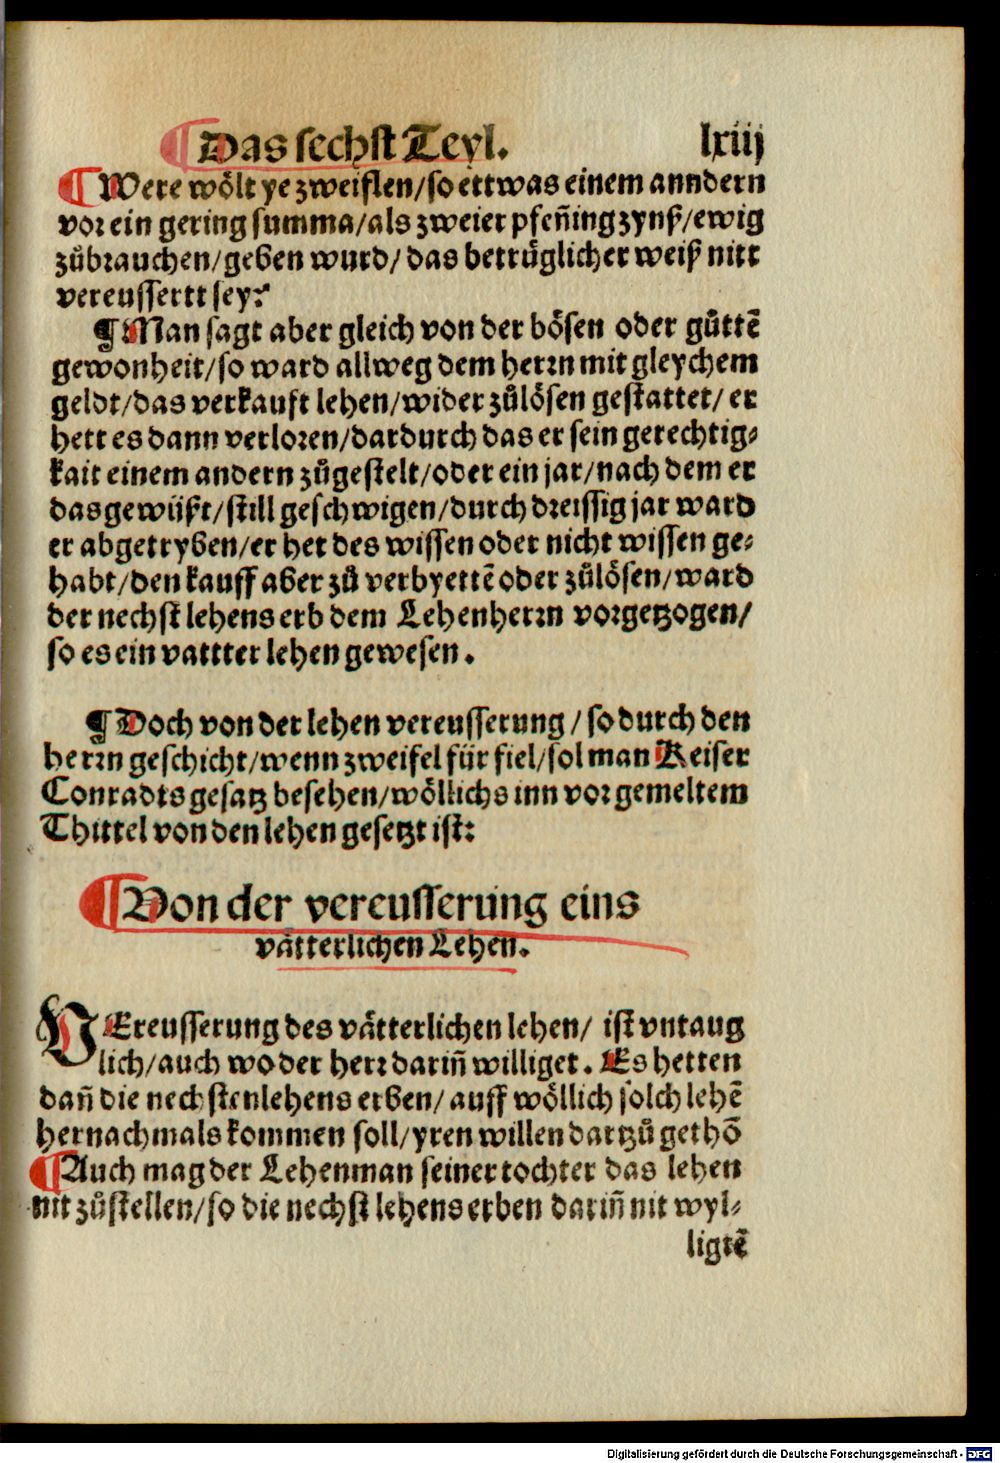 ¶ Das sechst Teyl. lxiij
¶ Were wölt ye zweiflen/so ettwas einem anndern
vor ein gering summa/als zweier pfen̄ing zynß/ewig
zůbrauchen/geben wurd/das betrüglicher weiß nitt
vereussertt sey?
¶ Man sagt aber gleich von der bösen oder gůttē
gewonheit/so ward allweg dem herrn mit gleychem
geldt/das verkauft lehen/wider zůlösen gestattet/er
hett es dann verloren/dardurch das er sein gerechtig⸗
kait einem andern zůgestelt/oder ein jar/nach dem er
das gewüßt/still geschwigen/durch dreissig jar ward
er abgetryben/er het des wissen oder nicht wissen ge⸗
habt/den kauff aber zů verbyettē oder zůlösen/ward
der nechst lehens erb dem Lehenherrn vorgetzogen/
so es ein vattter lehen gewesen.
¶ Doch von der lehen vereusserung/so durch den
herrn geschicht/wenn zweifel für fiel/sol man Keiser
Conradts gesatz besehen/wöllichs inn vorgemeltem
Thittel von den lehen gesetzt ist:
¶ Von der vereusserung eins
vätterlichen Lehen.
VEreusserung des vätterlichen lehen/ ist vntaug
lich/auch wo der herr darin̄ williget. Es hetten
dan̄ die nechstenlehens erben/auff wöllich solch lehē
hernachmals kommen soll/yren willen dartzů gethō
¶ Auch mag der Lehenman seiner tochter das lehen
nit zůstellen/so die nechst lehens erben darin̄ nit wyl⸗
ligtē
Digitalisierung gefördert durch die Deutsche Forschungsgemeinschaft - DFG